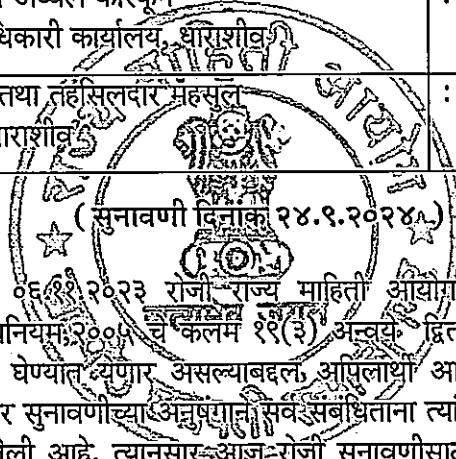 अव्वल कारकून
धिकारी कार्यालय, धाराशीव
तथा तहसिलदार महसुल :
ाराशीव
( सुनावणी दिनांक २४.९.२०२४ )
०६.११.२०२३ रोजी राज्य माहिती आयोग
नियम,२००५ चे कलम १९(३) अन्वये द्वित
घेण्यात येणार असल्याबद्दल, अपिलार्थी आ
र सुनावणीच्या अनुषंगाने सर्व संबंधितांना त्यां
ेली आहे. त्यानुसार आज रोजी सुनावणीसा